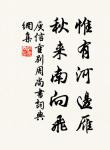 惟有河邊雁
秋来南向飛
庾信重别周尚書詞典
網集